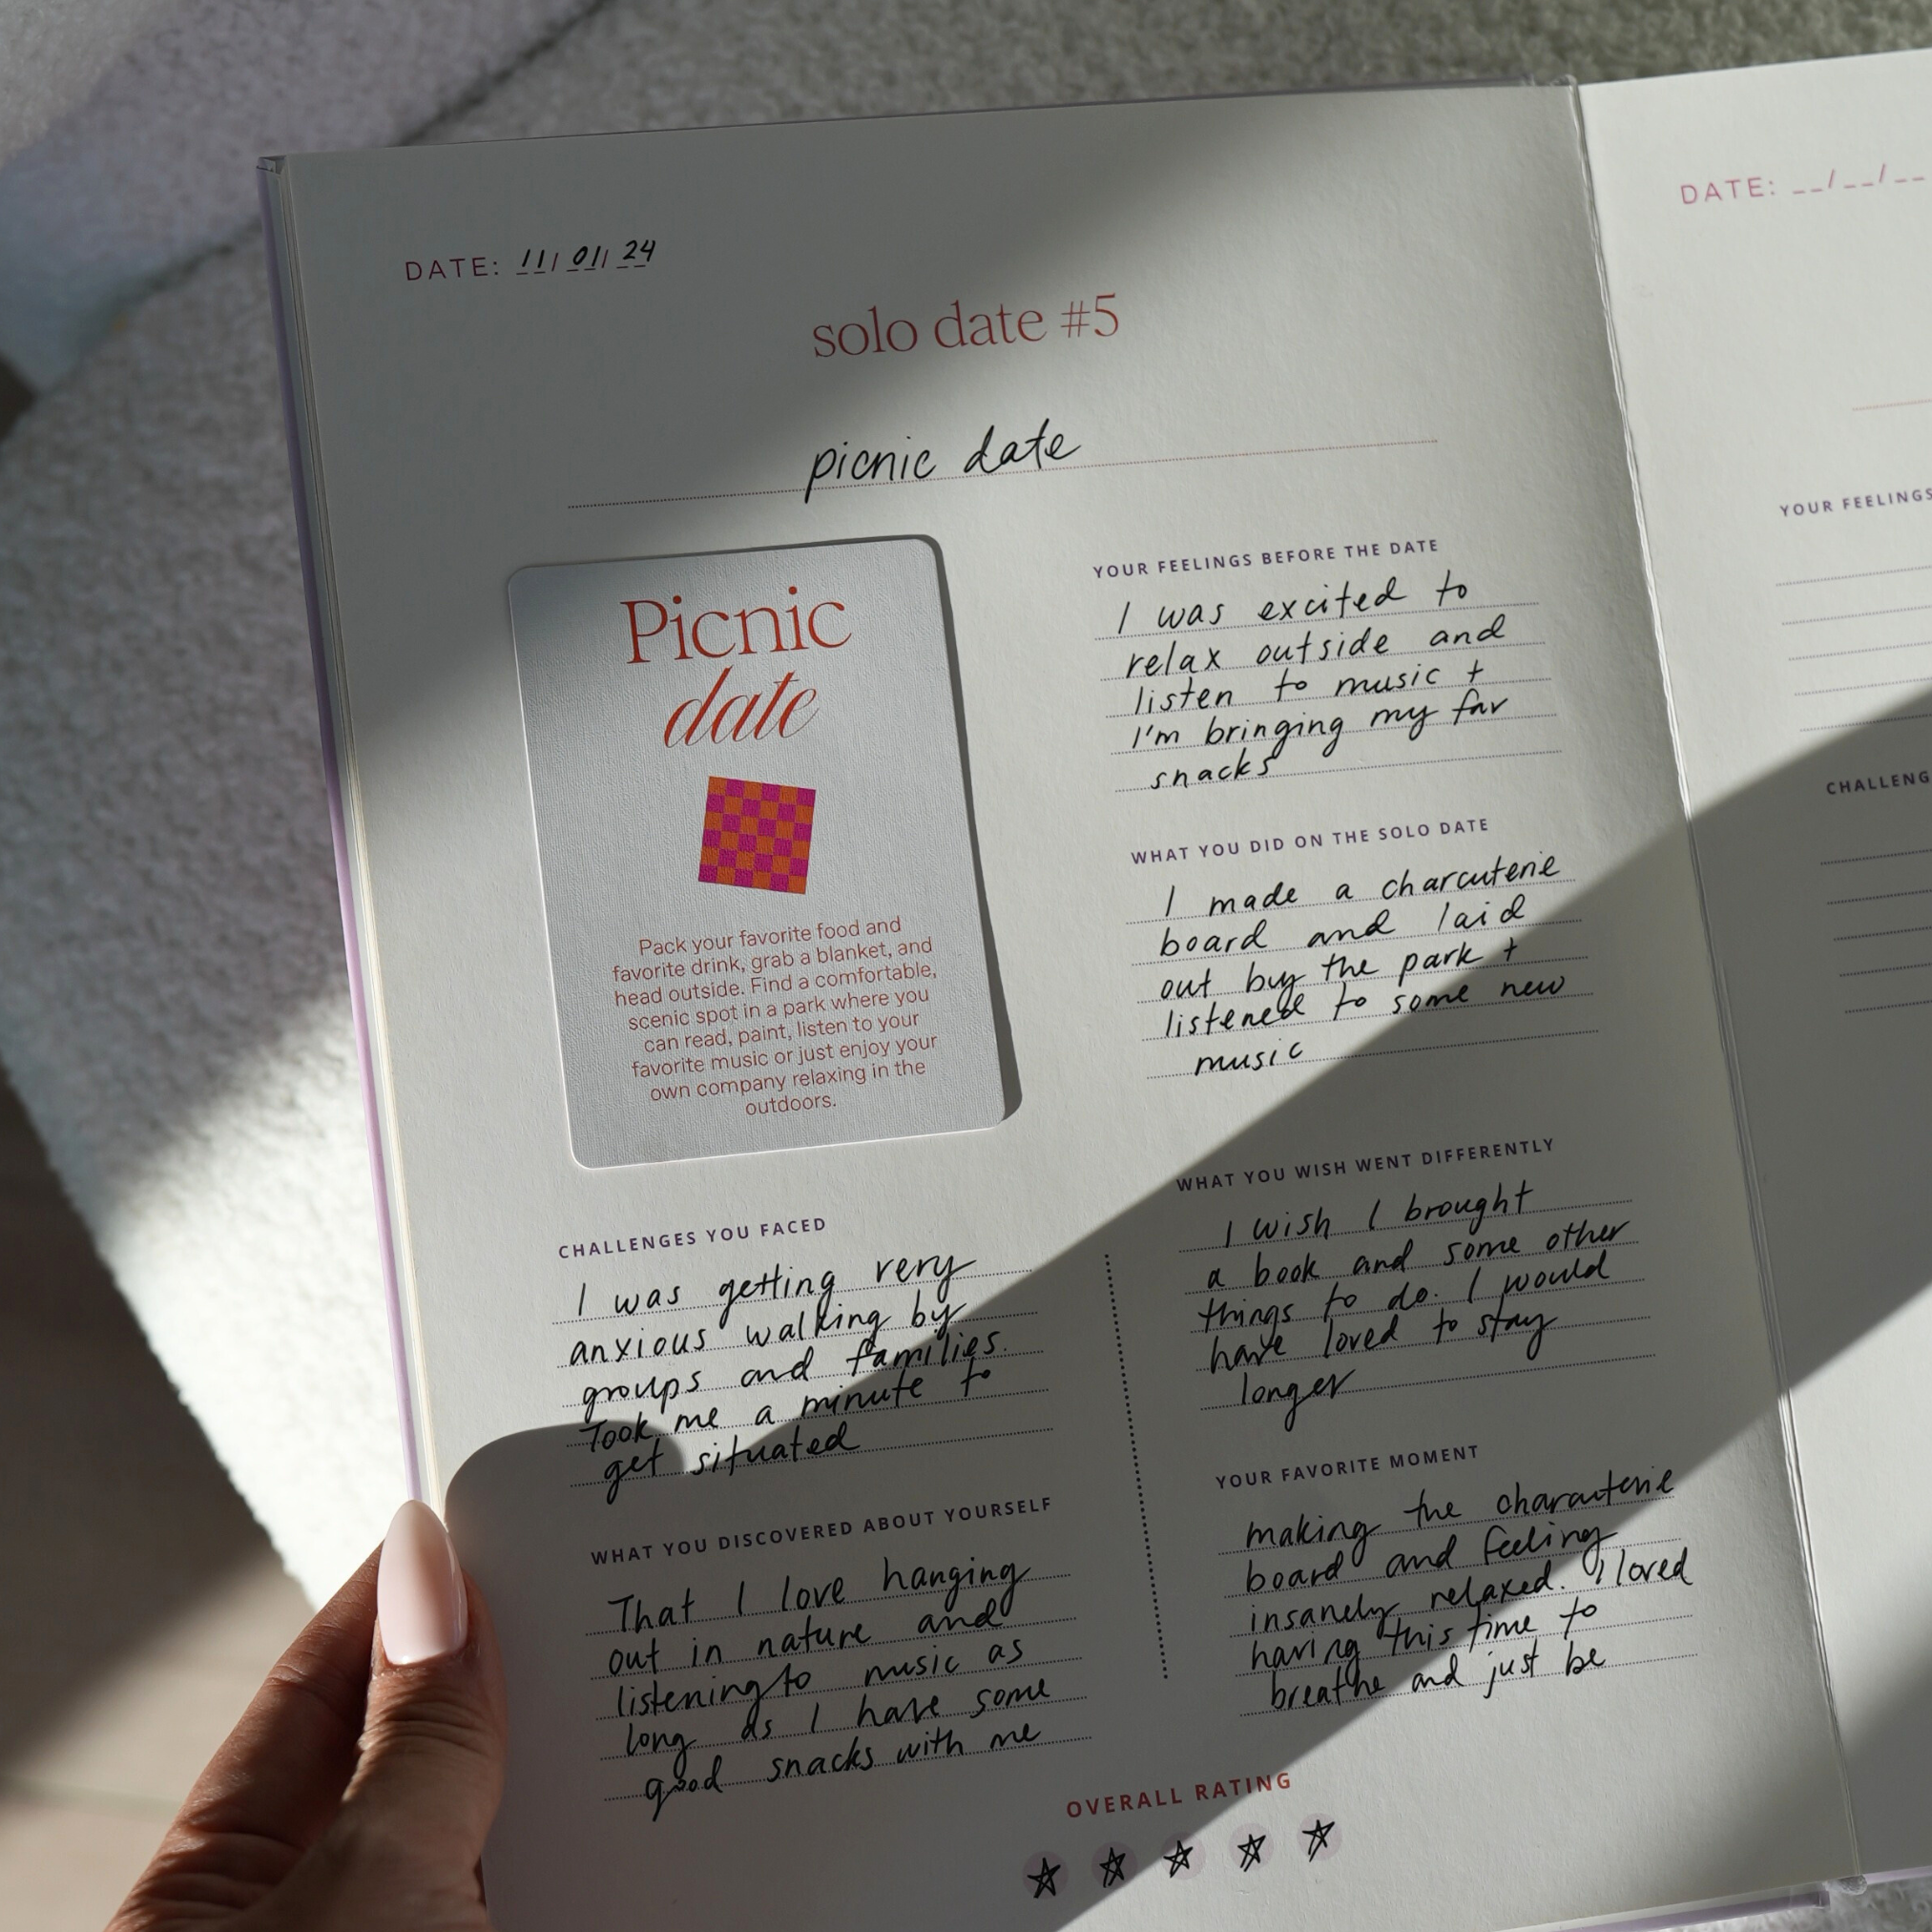 DATE: 11/01/24
solo date #5
picnic date
Picnic
date
Pack your favorite food and
favorite drink, grab a blanket, and
head outside. Find a comfortable,
scenic spot in a park where you
can read, paint, listen to your
favorite music or just enjoy your
own company relaxing in the
outdoors.
YOUR FEELINGS BEFORE THE DATE
I was excited to
relax outside and
listen to music +
I'm bringing my fav
snacks
WHAT YOU DID ON THE SOLO DATE
I made a charcuterie
board and laid
out by the park +
listened to some new
music
CHALLENGES YOU FACED
I was getting very
anxious walking by
groups and families.
Took me a minute to
get situated
WHAT YOU DISCOVERED ABOUT YOURSELF
That I love hanging
out in nature and
listening to music as
long as I have some
good snacks with me
WHAT YOU WISH WENT DIFFERENTLY
I wish I brought
a book and some other
things to do. I would
have loved to stay
longer
YOUR FAVORITE MOMENT
making the charcuterie
board and feeling
insanely relaxed. I loved
having this time to
breathe and just be
OVERALL RATING
DATE: __/__/__
YOUR FEELINGS
CHALLENG